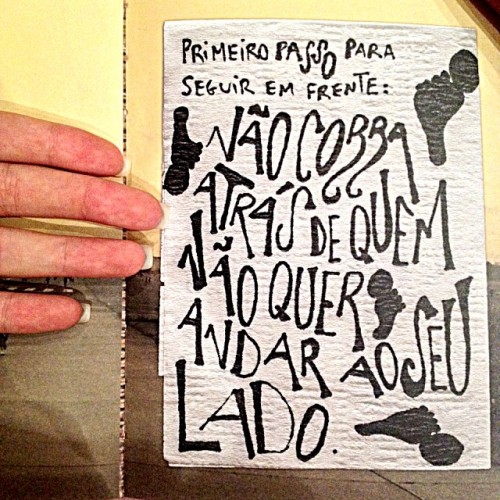 PRIMEIRO PASSO PARA
SEGUIR EM FRENTE:
NÃO CORRA
ATRÁS DE QUEM
NÃO QUER
ANDAR AO SEU
LADO.